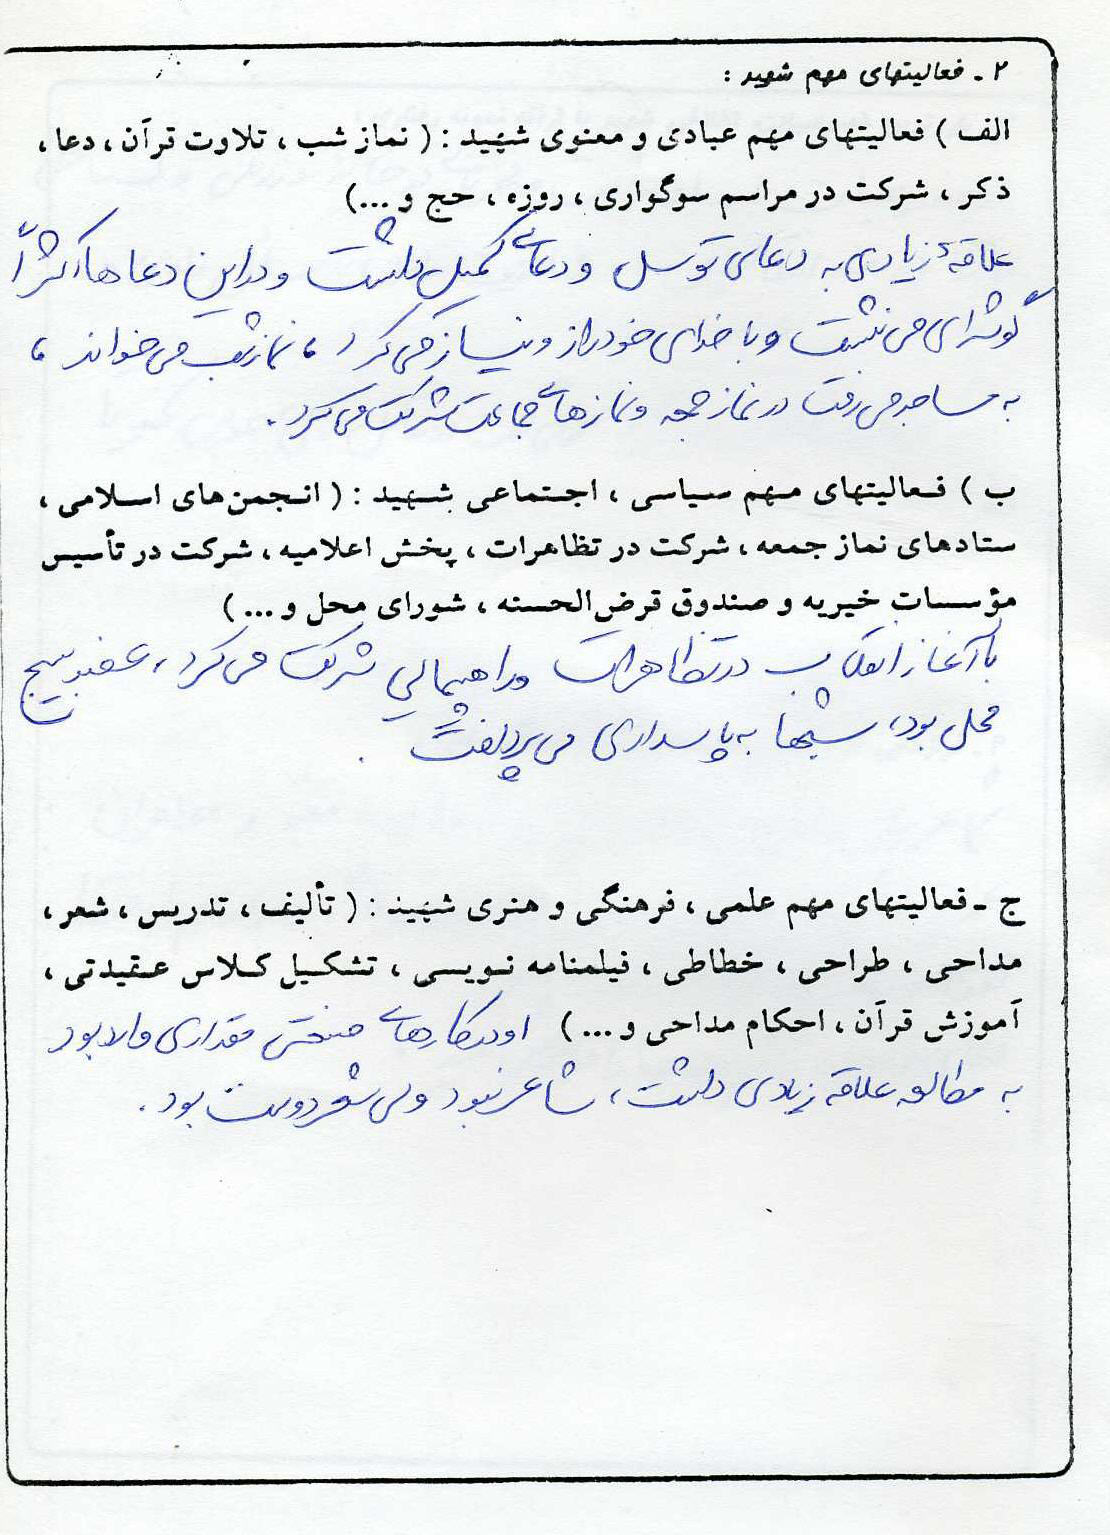 ۲ ـ فعالیتهای مهم شهید :
الف ) فعالیتهای مهم عبادی و معنوی شهید : ( نماز شب ، تلاوت قرآن ، دعا ،
ذکر ، شرکت در مراسم سوگواری ، روزه ، حج و ...)
علاقهٔ زیادی به دعای توسل و دعای کمیل داشت و در این دعاها اکثراً
گوشه‌ای می نشست و با خدای خود راز و نیاز می کرد ، نماز شب می خواند ،
به مساجد می رفت در نماز جمعه و نمازهای جماعت شرکت می کرد .
ب ) فعالیتهای مهم سیاسی ، اجتماعی شهید : ( انجمن‌های اسلامی ،
ستادهای نماز جمعه ، شرکت در تظاهرات ، پخش اعلامیه ، شرکت در تأسیس
مؤسسات خیریه و صندوق قرض‌الحسنه ، شورای محل و ... )
با آغاز انقلاب در تظاهرات و راهپیمایی شرکت می کرد ، عضو بسیج
محل بود ، شبها به پاسداری می پرداخت .
ج ـ فعالیتهای مهم علمی ، فرهنگی و هنری شهید : ( تألیف ، تدریس ، شعر ،
مداحی ، طراحی ، خطاطی ، فیلمنامه نویسی ، تشکیل کلاس عقیدتی ،
آموزش قرآن ، احکام مداحی و ... ) او در کارهای صنعتی مقداری وارد بود
به مطالعه علاقه زیادی داشت ، شاعر نبود ولی شعر دوست بود .